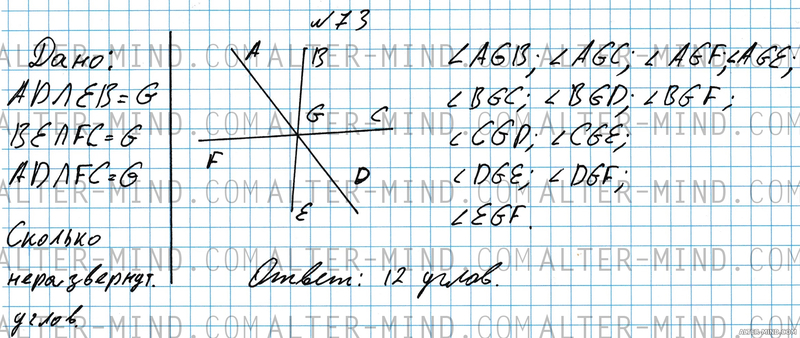 № 73
Дано:
AD∩EB=G
BE∩FC=G
AD∩FC=G
Сколько
неразвернут.
углов.
A
B
G
C
F
D
E
∠AGB; ∠AGC; ∠AGF; ∠AGE;
∠BGC; ∠BGD; ∠BGF;
∠CGD; ∠CGE;
∠DGE; ∠DGF;
∠EGF.
Ответ: 12 углов.
ALTER-MIND.COM
ALTER-MIND.COM